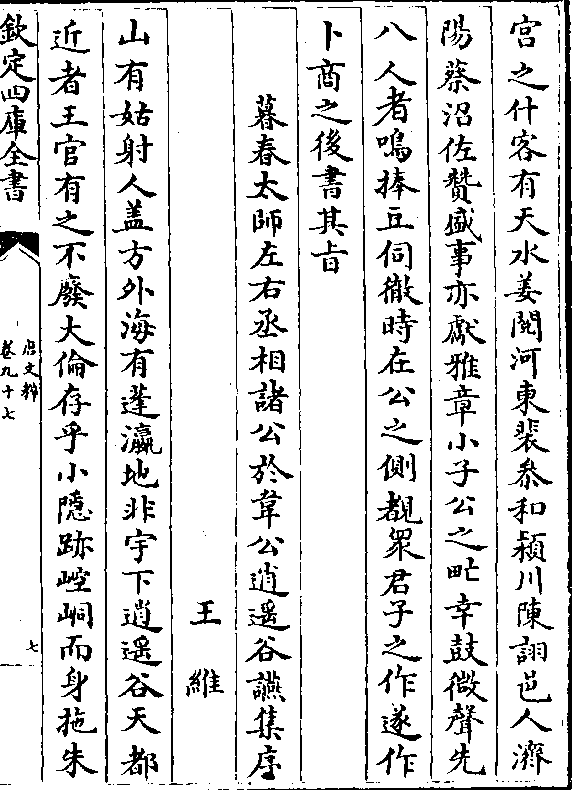 宫之什客有天水姜閱河東裴叅和潁川陳詡邑人濟
陽蔡沼佐贊盛事亦獻雅章小子公之甿幸鼓微聲先
八人者嗚捧豆伺徹時在公之側覩衆君子之作遂作
卜商之後書其㫖
暮春太師左右丞相諸公於韋公逍遥谷讌集序
王維
山有姑射人盖方外海有蓬瀛地非宇下逍遥谷天都
近者王官有之不廢大倫存乎小隱跡崆峒而身拖朱
欽定四庫全書
唐文粹
卷九十七
七